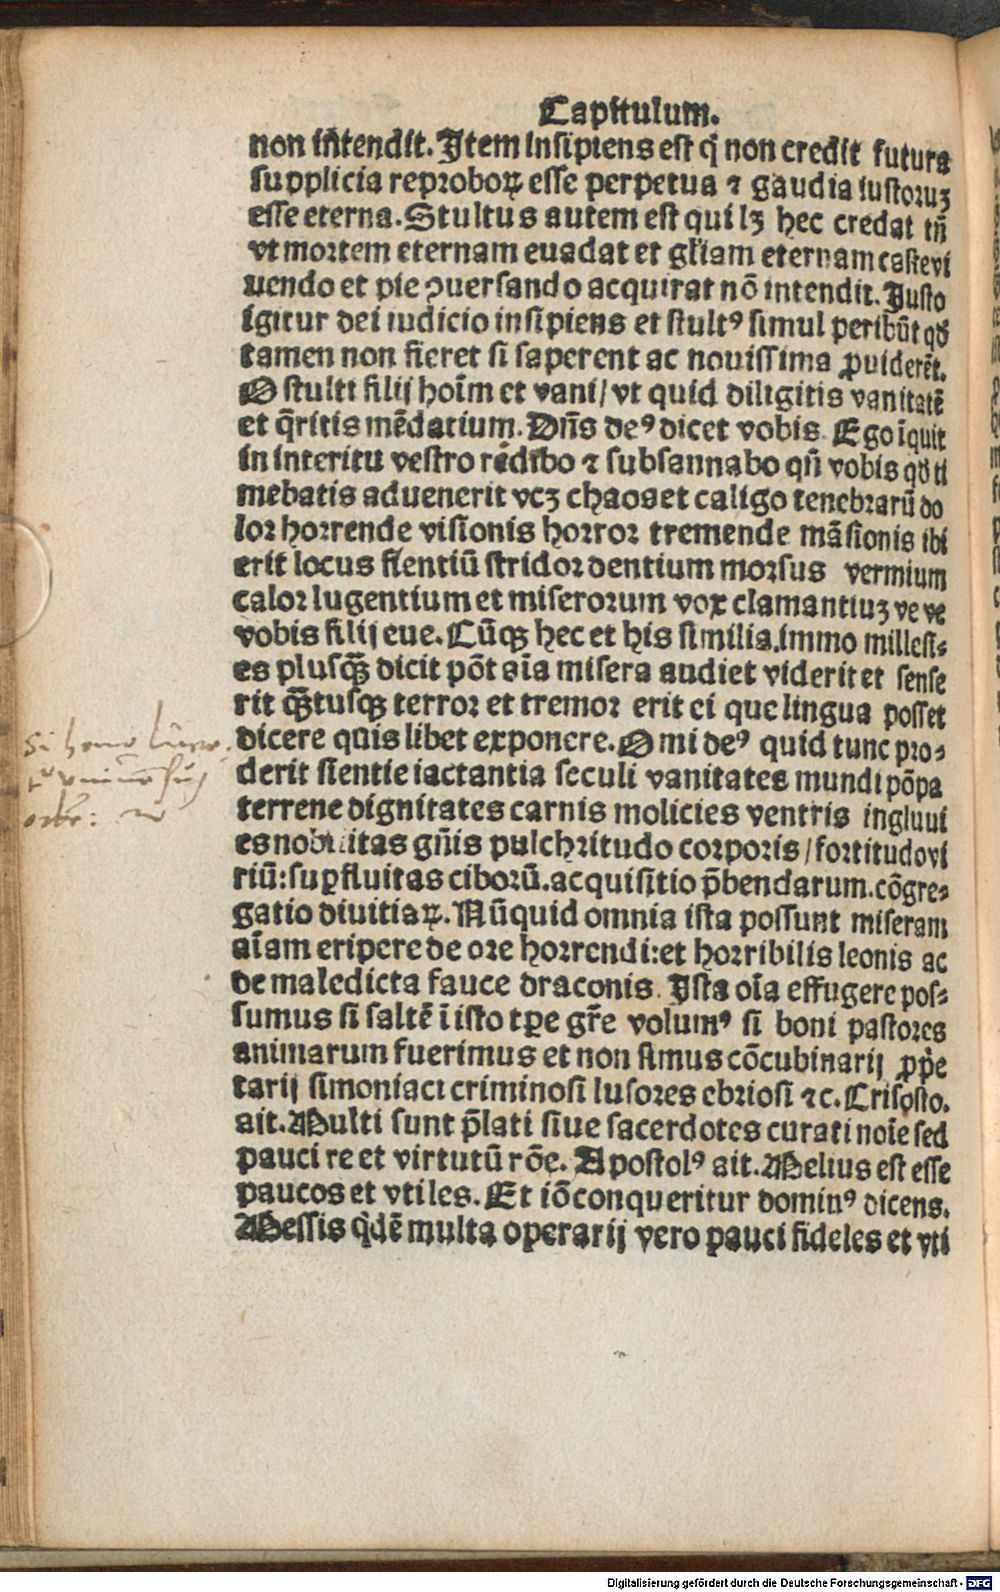 Capitulum.
non intēdit. Item insipiens est q̇ non credit futura
supplicia reproboꝝ esse perpetua ⁊ gaudia iustoruꝫ
esse eterna. Stultus autem est qui lꝫ hec credat tn̄
vt mortem eternam euadat et gl̄iam eternam caste vi
uendo et pie ꝯuersando acquirat nō intendit. Iusto
igitur dei iudicio insipiens et stultꝰ simul peribūt qd̓
tamen non fieret si saperent ac nouissima ꝓuiderēt.
O stulti filij hoīm et vani / vt quid diligitis vanitatē
et q̄ritis mēdatium. Dn̄s deꝰ dicet vobis. Ego īquit
in interitu vestro ridebo ⁊ subsannabo qn̄ vobis qd̓ ti
mebatis aduenerit vcꝫ chaos et caligo tenebrarū do
lor horrende visionis horror tremende māsionis ibi
erit locus flentiū stridor dentium morsus vermium
calor lugentium et miserorum vox clamantiuꝫ ve ve
vobis filij eue. Cūqꝫ hec et his similia. immo millesi-
es plusqꝫ̄ dicit pōt aīa misera audiet viderit et sense
rit qꝫ̄tusqꝫ terror et tremor erit ei que lingua posset
dicere quis libet exponere. O mi deꝰ quid tunc pro-
derit sientie iactantia seculi vanitates mundi pōpa
terrene dignitates carnis molicies ventris ingluui
es nobilitas gn̄is pulchritudo corporis / fortitudo vi
riū: suꝑfluitas ciborū. acquisitio p̄bendarum. cōgre-
gatio diuitiaꝝ. Nūquid omnia ista possunt miseram
aīam eripere de ore horrendi: et horribilis leonis ac
de maledicta fauce draconis. Ista oīa effugere pos-
sumus si saltē ī isto tꝑe gr̄e volumꝰ si boni pastores
animarum fuerimus et non simus cōcubinarij ꝓpe
tarij simoniaci criminosi lusores ebriosi ⁊c. Crisosto.
ait. Multi sunt p̄lati siue sacerdotes curati noīe sed
pauci re et virtutū rōe. Apostolꝰ ait. Melius est esse
paucos et vtiles. Et iō conqueritur dominꝰ dicens.
Messis qdē multa operarij vero pauci fideles et vti
Si homo
Digitalisierung gefördert durch die Deutsche Forschungsgemeinschaft - DFG